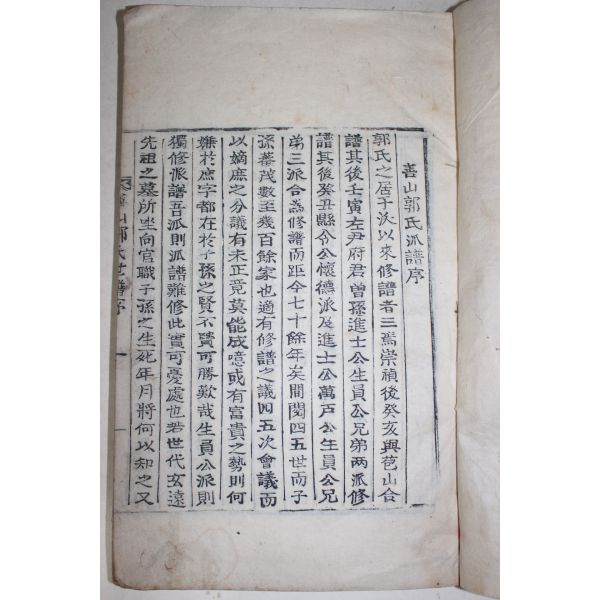 善山郭氏派譜序
郭氏之居于汝以來修譜者三焉崇禎後癸亥與苞山合
譜其後壬寅左尹府君曾孫進士公生員公兄弟兩派修
譜其後癸丑縣令公懷德派及進士公萬戶公生員公兄
弟三派合為修譜而距今七十餘年矣間閱四五世而子
孫蕃茂數至幾百餘家也適有修譜之議四五次會議而
以嫡庶之分議有未正竟莫能成噫或有富貴之勢則何
嫌於庶字都在於子孫之賢不贒可勝歎哉生員公派則
獨修派譜吾派則派譜難修此實可憂處也若世代玄遠
先祖之墓所坐向官職子孫之生死年月將何以知之又
善山郭氏世譜序 一